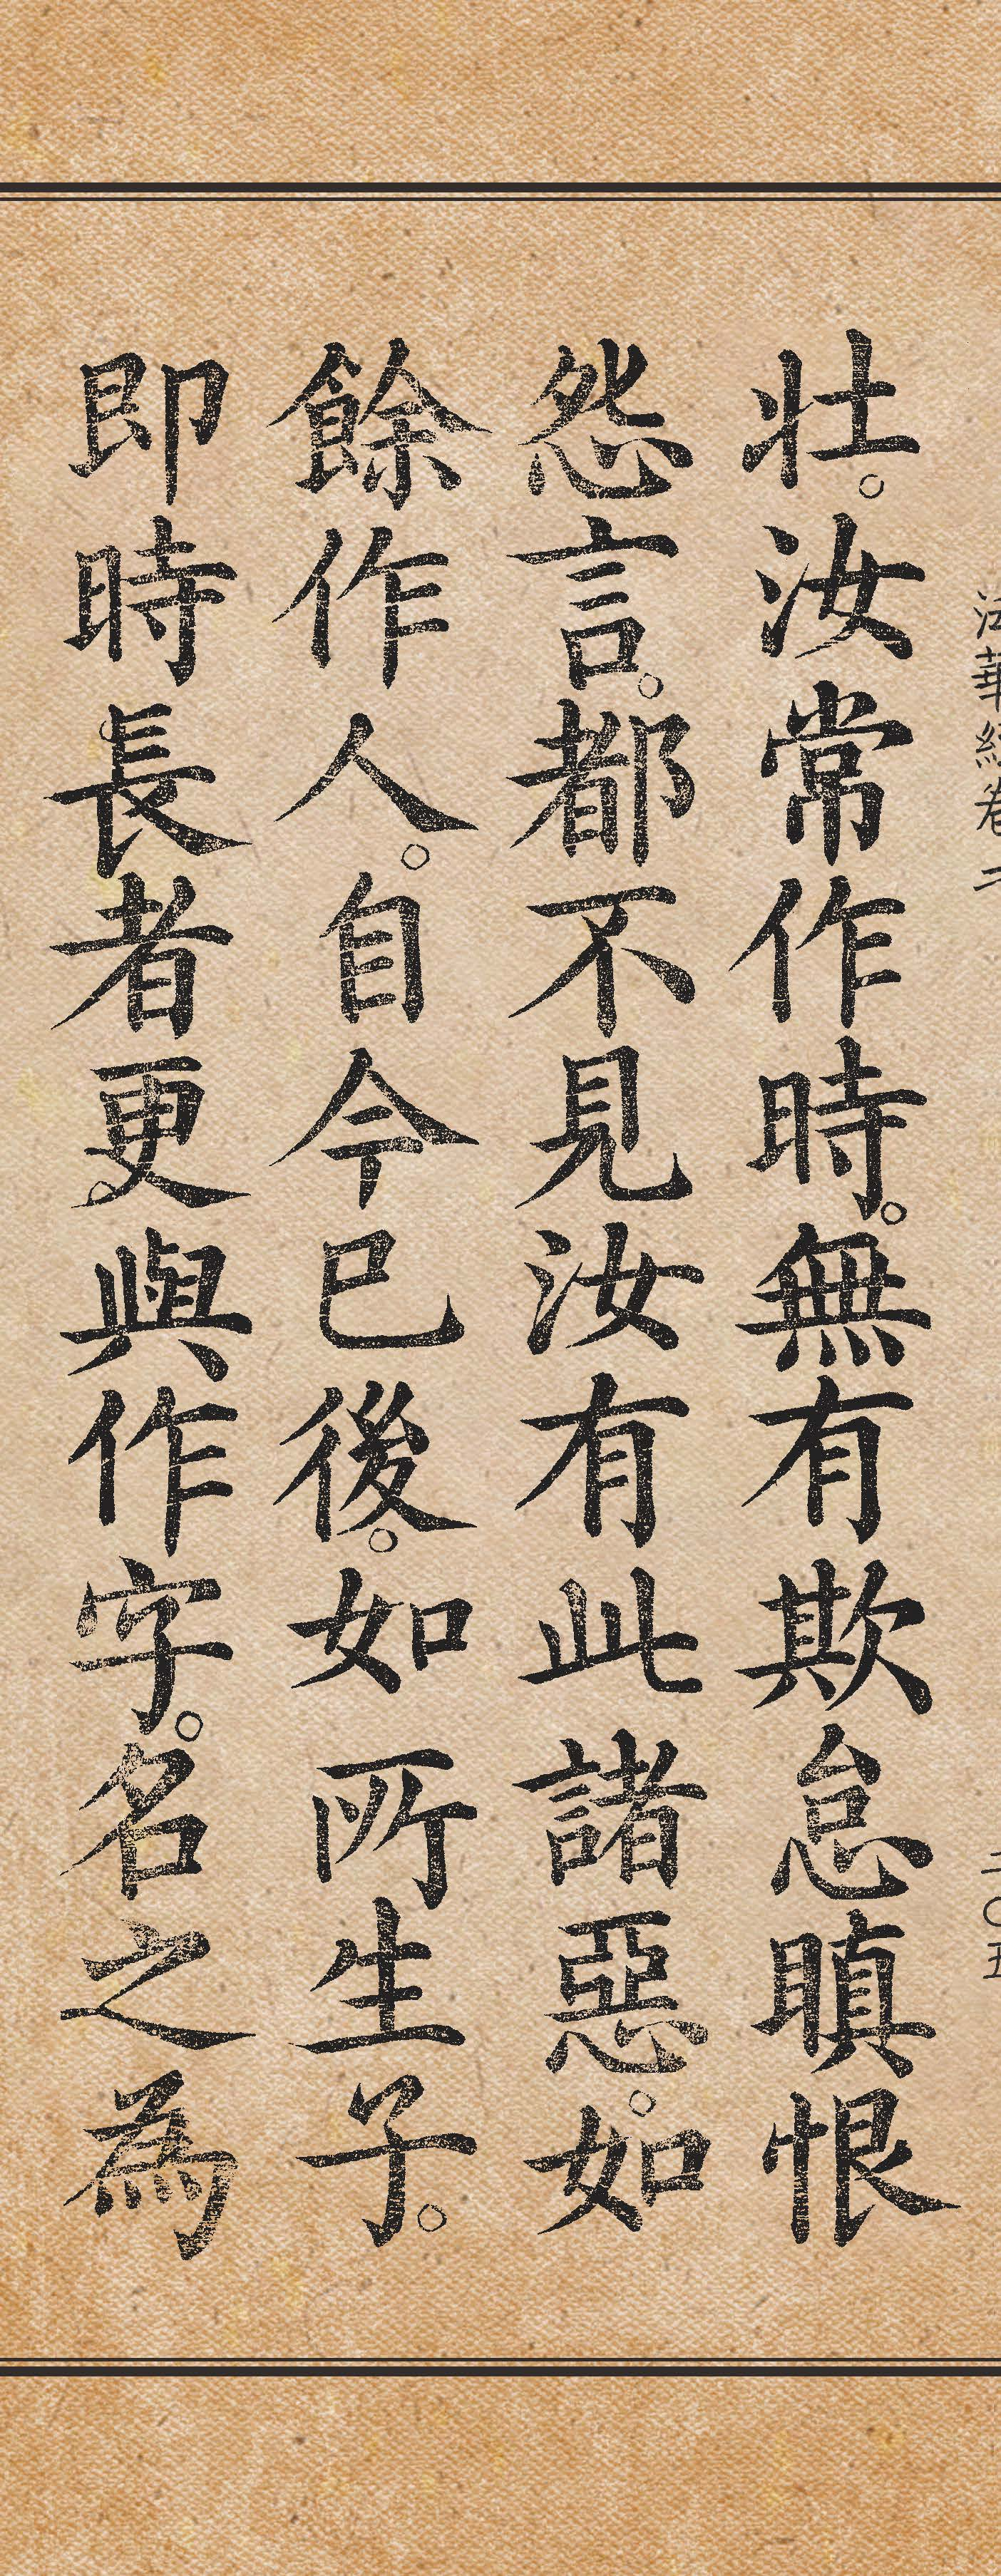 法華經卷二 二〇五
壯。汝常作時。無有欺怠瞋恨
怨言。都不見汝有此諸惡。如
餘作人。自今已後。如所生子。
即時長者更與作字。名之為